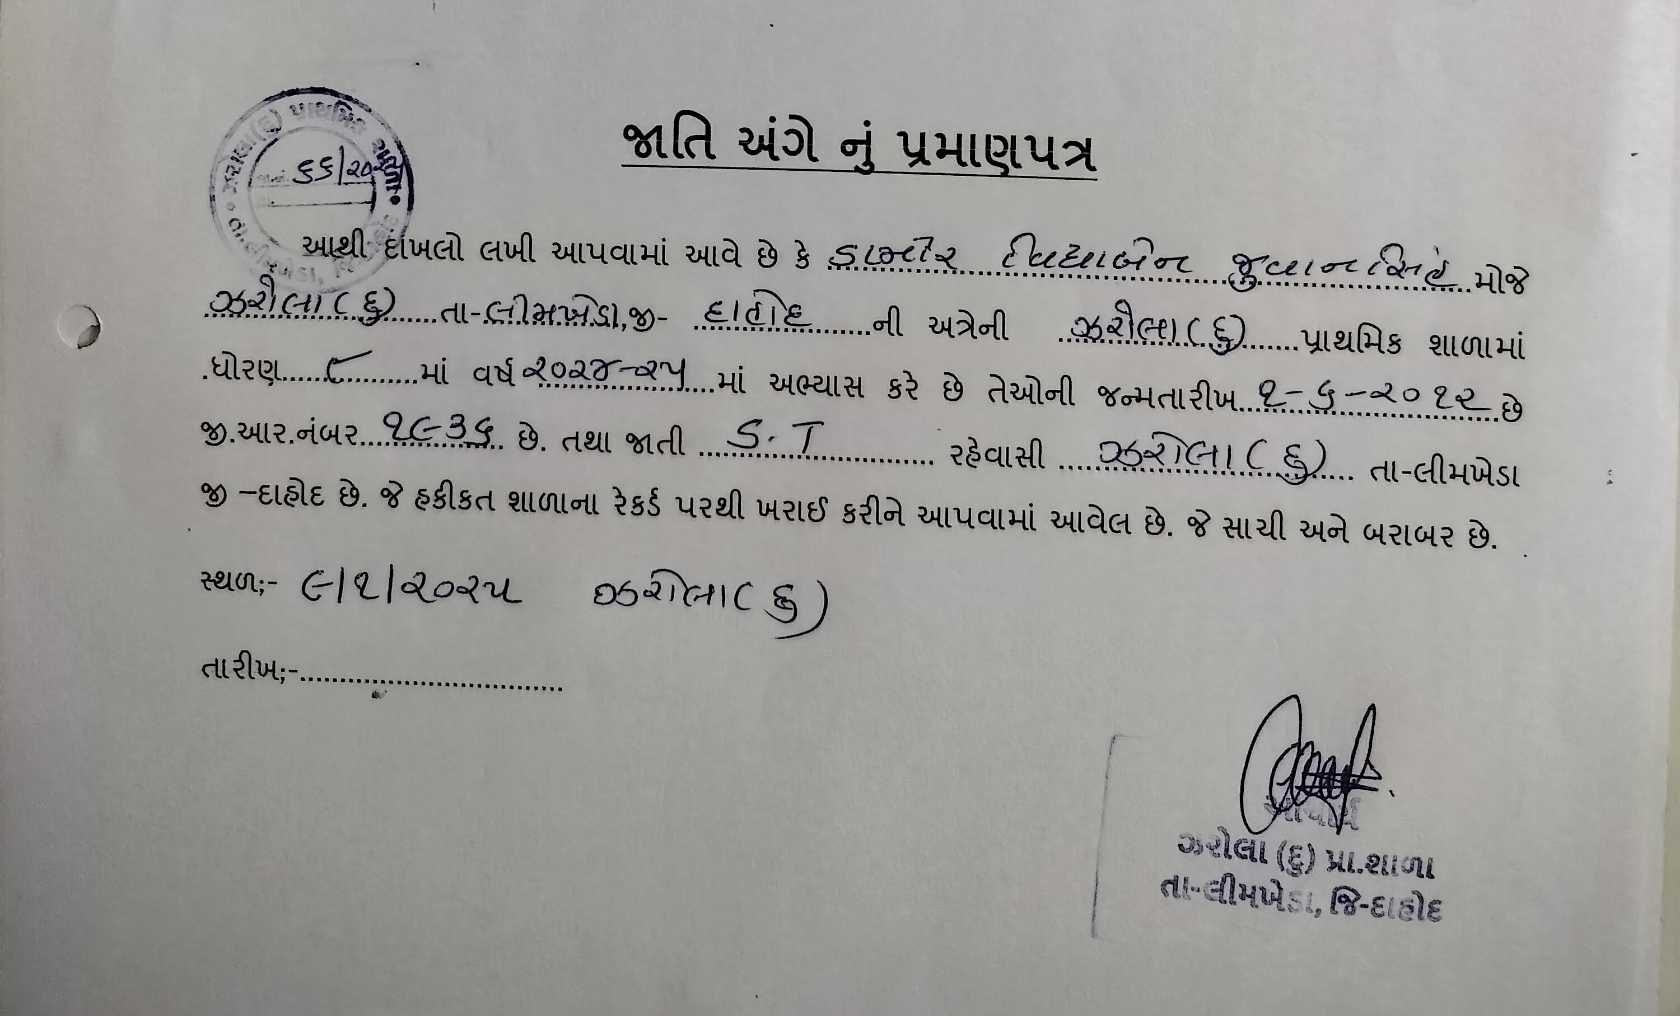 ઝરોલા(દુ) પ્રાથમિક શાળા
૬૬/૨૦૨
જાતિ અંગે નું પ્રમાણપત્ર
આથી દાખલો લખી આપવામાં આવે છે કે ડામોર દિવ્યાબેન જુવાનસિંહ મોજે
ઝરોલા(દુ) તા-લીમખેડા,જી- દાહોદ ની અત્રેની ઝરોલા(દુ) પ્રાથમિક શાળામાં
ધોરણ ૮ માં વર્ષ ૨૦૨૪-૨૫ માં અભ્યાસ કરે છે તેઓની જન્મતારીખ ૧-૬-૨૦૧૨ છે
જી.આર.નંબર ૧૯૩૬ છે. તથા જાતી S.T રહેવાસી ઝરોલા(દુ) તા-લીમખેડા
જી -દાહોદ છે. જે હકીકત શાળાના રેકર્ડ પરથી ખરાઈ કરીને આપવામાં આવેલ છે. જે સાચી અને બરાબર છે.
સ્થળ;- ૯/૧/૨૦૨૫ ઝરોલા(દુ)
તારીખ;-
આચાર્ય
ઝરોલા (દુ) પ્રા.શાળા
તા-લીમખેડા, જિ-દાહોદ